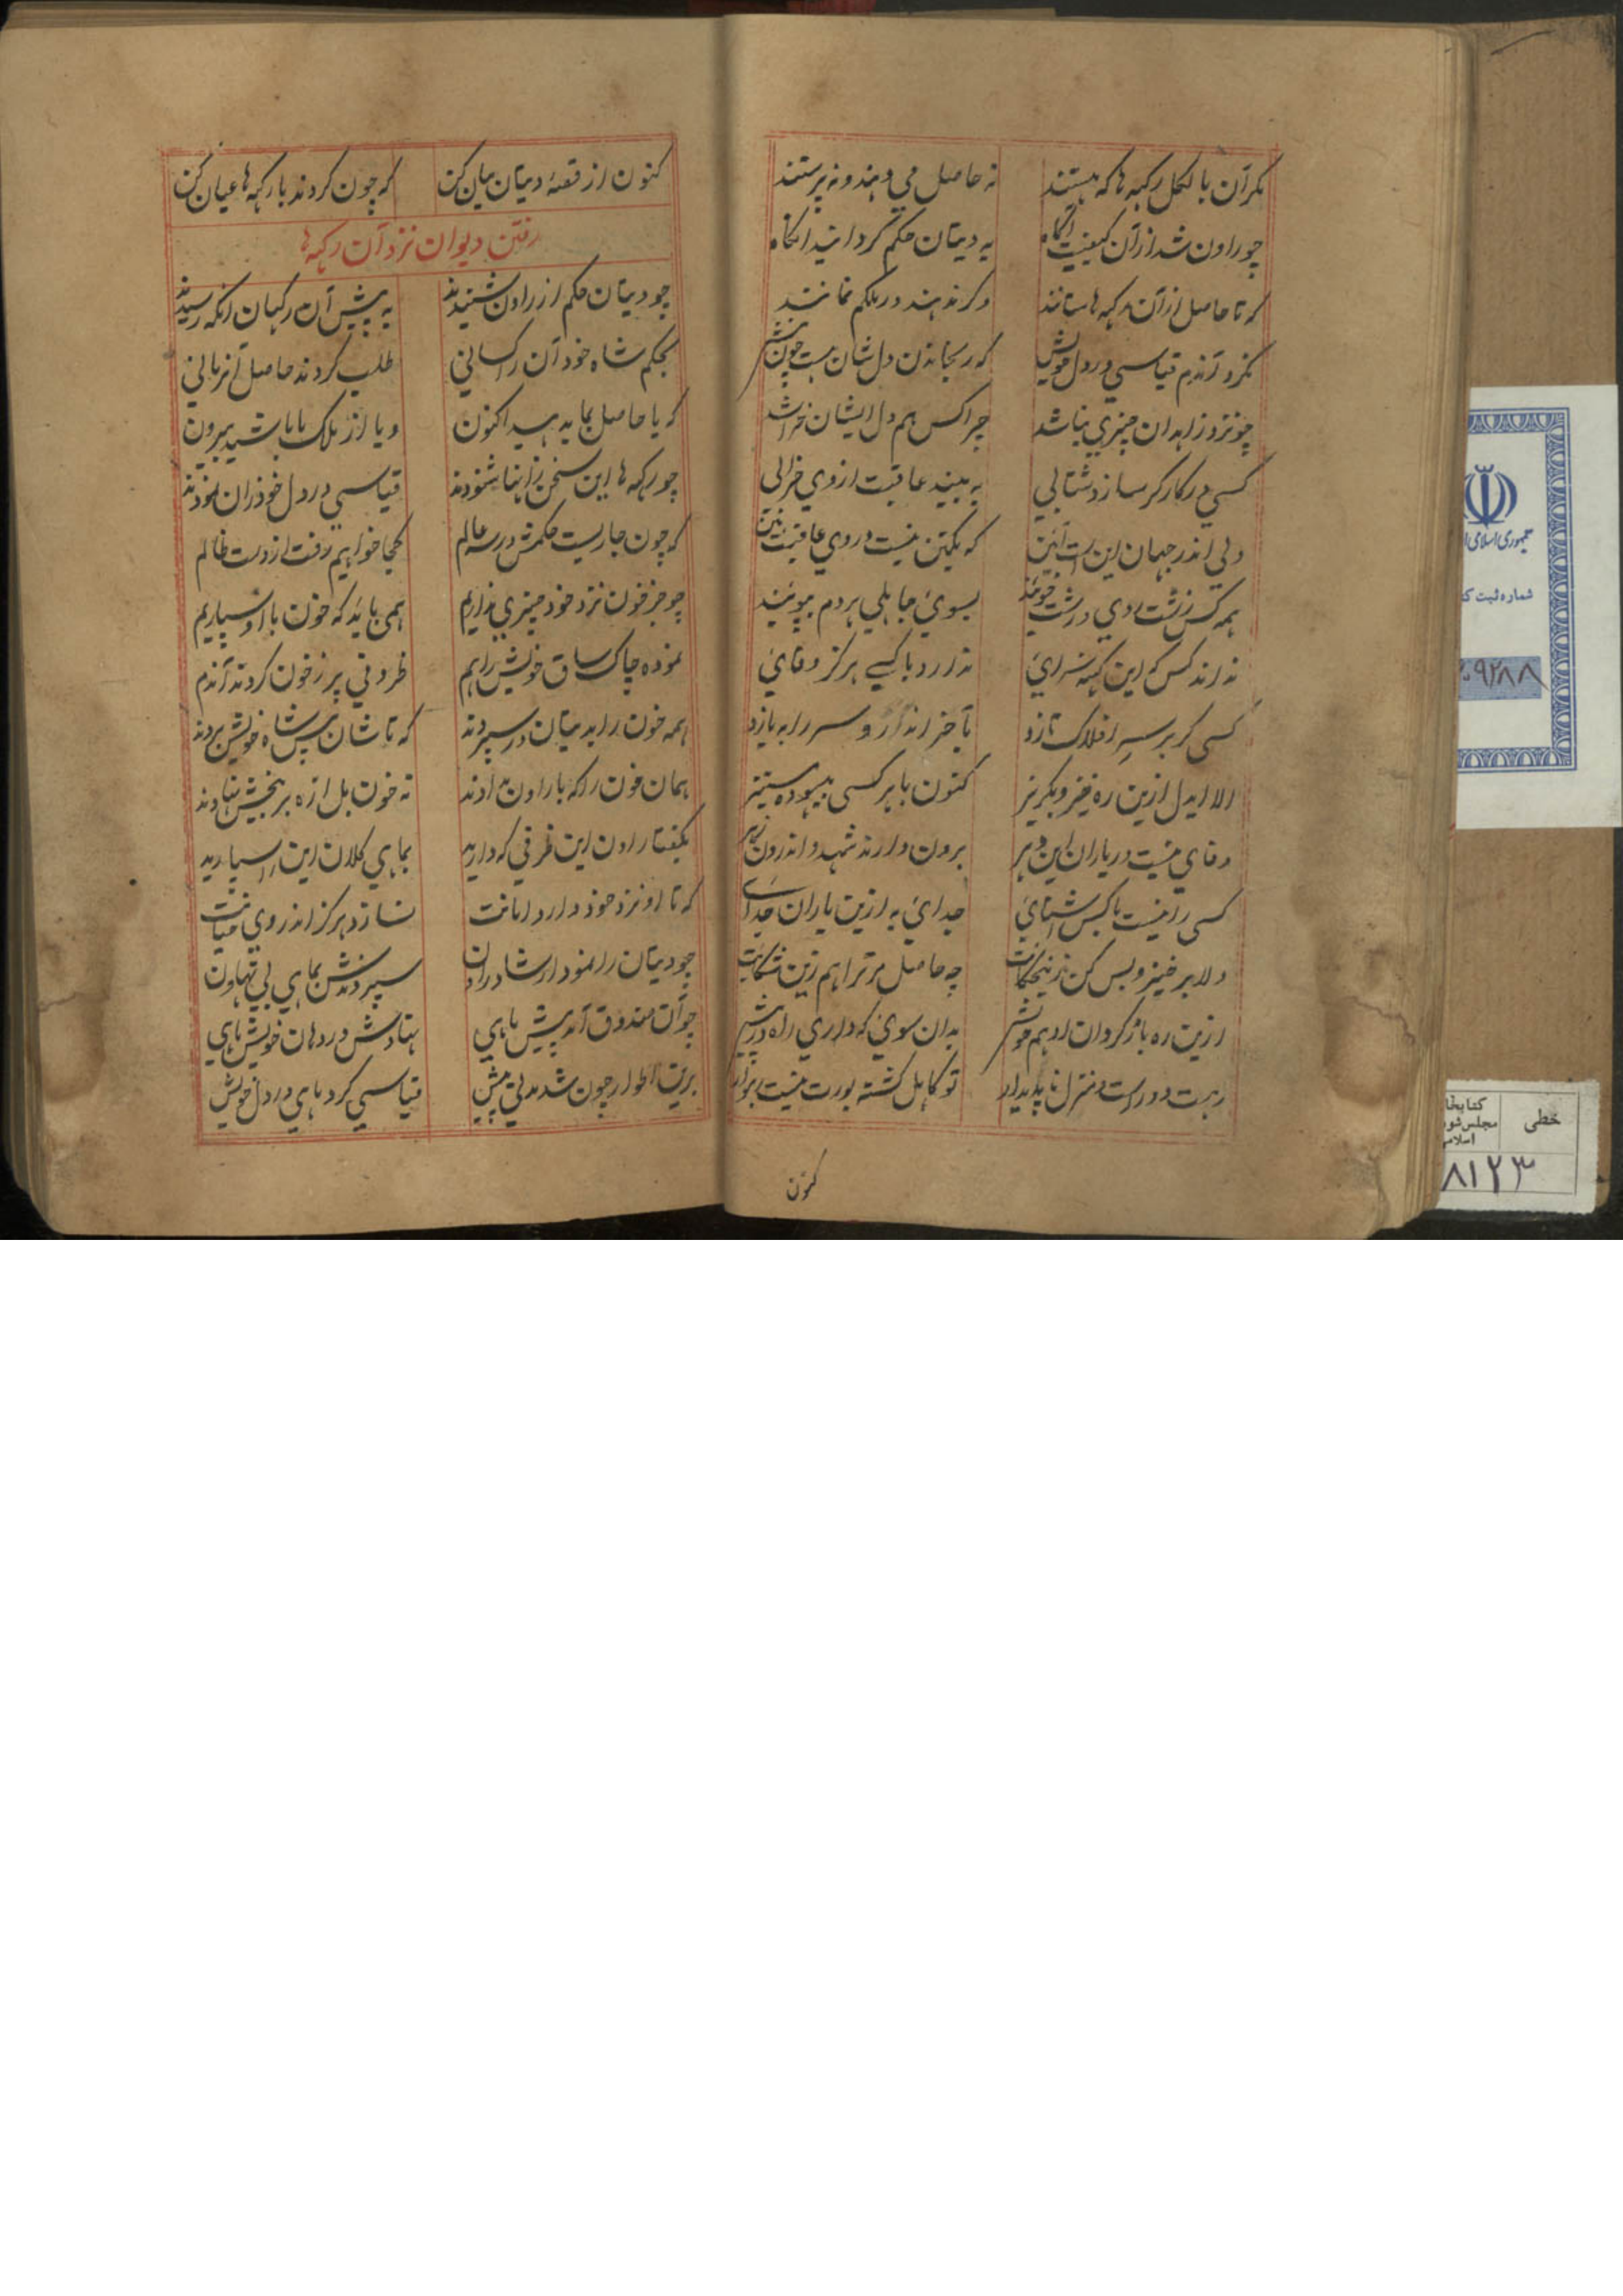 مکر آن بالکل رکهه ها که هستند نه حاصل می دهند و نه پرستند
چو راون شد از آن کیفیت آگاه به دیتان حکم گردانید انگاه
که تا حاصل از آن رکهه ها ستانند وگر ندهند در ملکم نمانند
نکرد آندم قیاسی در دل خویش که رنجاندن دل شان هست چون نیش
چو نزد زاهدان چیزی نباشد چرا کس هم دل ایشان خراشد
کسی در کار کر سازد شتابی به بیند عاقبت از وی خرابی
ولی اندر جهان این است آئین که یکتن نیست در وی عاقبت بین
همه کس زشت وی درشت خویند بسوی جاهلی هر دم بپویند
نداند کس که این کهنه سرای ندارد با کسی هرگز وفای
کسی کر بر سر افلاک تازد بآخر اندر و سر را ببازد
الا ایدل ازین ره خیز و بگریز کنون با هر کسی بیهوده مستیز
وفای نیست در یاران این دهر برون دارند شهد و اندرون زهر
کسی را نیست با کس آشنای جدای به ازین یاران جدای
دلا برخیز و بس کن زین حکایت چه حاصل مر ترا هم زین شکایت
ازین ره باز کردان ادهم خویش بدان سوی که داری راه در پیش
رهت دور است و منزل ناپدیدار تو کاهل کشته بورت نیست رهوار
کنون
کنون از قصهٔ دیتان بیان کن که چون کردند با رکهه ها عیان کن
رفتن دیوان نزد آن رکهه ها
چو دیتان حکم از راون شنیدند به پیش آن رکهیان انکه رسیدند
بحکم شاه خود آن راکسانی طلب کردند حاصل آنزمانی
که یا حاصل بما بدهید اکنون و یا از ملک ما باشید بیرون
چو رکهه ها این سخن زانها شنودند قیاسی در دل خود زان نمودند
که چون جاریست حکمش در سه عالم کجا خواهیم رفت از دست ظالم
چو جز خون نزد خود چیزی نداریم همی باید که خون با او سپاریم
نموده چاک ساق خویش راهم ظروفی پر ز خون کردند آندم
همه خون را بدیتان در سپردند که تا شان پیش شاه خویش بردند
همان خون را که با راون بدادند نه خون بل ازه بر بیخش نهادند
بگفتا راون این ظرفی که دارید بماهی کلان این را سپارید
که تا او نزد خود دارد امانت نسازد هرگز اندر وی خیانت
چو دیتان را نمود ارشاد راون سپردندش بماهی بی تهاون
چو آن صندوق آمد پیش ماهی نهادش در دهان خویش ماهی
برین اطوار چون شد مدتی پیش قیاسی کرد ماهی در دل خویش
جمهوری اسلامی
شماره ثبت
۲۰۹۲۸۸
خطی
کتابخا
مجلس شو
اسلامی
۸۱۲۳